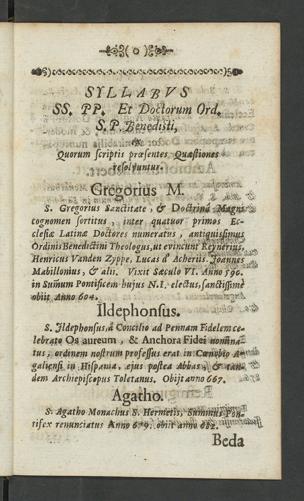 ( 0 )
SYLLABVS
SS. PP. Et Doctorum Ord.
S. P. Benedicti,
ex
Quorum scriptis præsentes Quæstiones
resolvuntur.
Gregorius M.
S. Gregorius Sanctitate, & Doctrinâ Magni
cognomen sortitus, inter quatuor primos Ec-
clesiæ Latinæ Doctores numeratus, antiquissimus
Ordinis Benedictini Theologus, ut evincunt Reynerius.
Henricus Vanden Zyppe. Lucas d' Acherius. Joannes
Mabillonius, & alii. Vixit Sæculo VI. Anno 590.
in Summum Pontificem hujus N. I. electus, sanctissimè
obiit Anno 604.
Ildephonsus.
S. Ildephonsus, à Concilio ad Pennam Fidelem ce-
lebrato Os aureum, & Anchora Fidei nomina-
tus, ordinem nostrum professus erat in Cœnobio A-
galiensi in Hispania, ejus postea Abbas, & tan-
dem Archiepiscopus Toletanus. Obijt anno 667.
Agatho.
S. Agatho Monachus S. Hermetis, Summus Pon-
tifex renunciatus Anno 679. obiit anno 682.
Beda